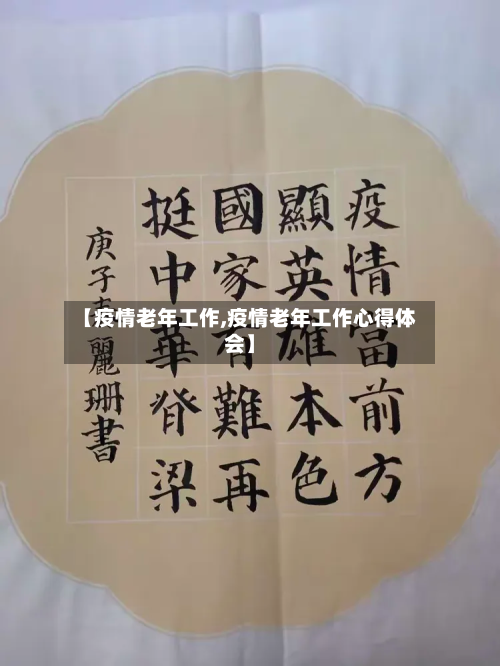 疫情當前方
顯英雄本色
國家有難再
挺中華脊梁
庚子麗珊書
【疫情老年工作,疫情老年工作心得体
会】